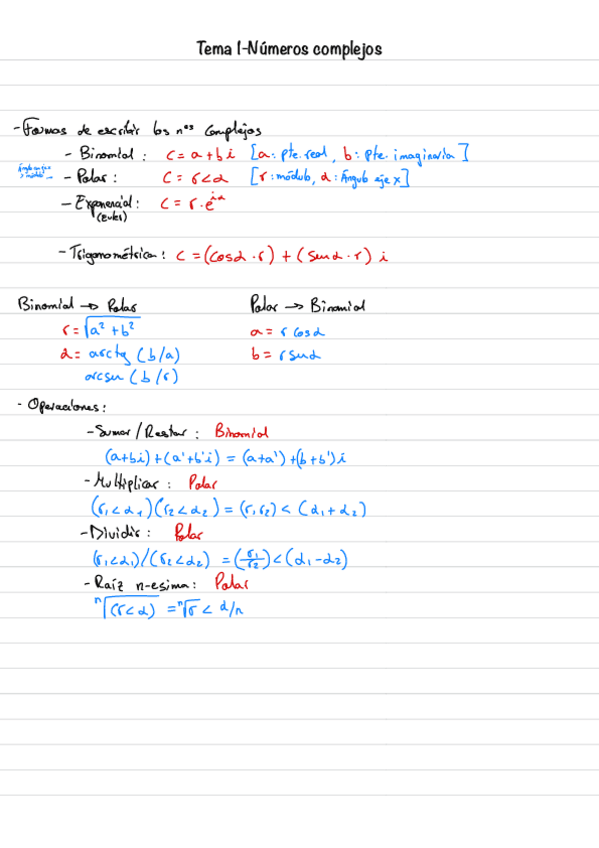 Tema 1-Números complejos
- Formas de escribir los nos complejos
- Binomial: C = a + b i [a: pte. real, b: pte. imaginaria]
- Polar: C = r < α [r: módulo, α: Ángulo eje x]
- Exponencial: C = r · e^iα
(Euler)
- Trigonométrica: C = (cosα · r) + (senα · r) i
Binomial → Polar
r = √a² + b²
α = arctg (b/a)
arcsen (b/r)
Polar → Binomial
a = r cosα
b = r senα
- Operaciones:
- Sumar/Restar: Binomial
(a+bi) + (a'+b'i) = (a+a') + (b+b') i
- Multiplicar: Polar
(r₁ < α₁)(r₂ < α₂) = (r₁r₂) < (α₁ + α₂)
- Dividir: Polar
(r₁ < α₁)/(r₂ < α₂) = (r₁/r₂) < (α₁ - α₂)
- Raíz n-esima: Polar
ⁿ√(r < α) = ⁿ√r < α/n